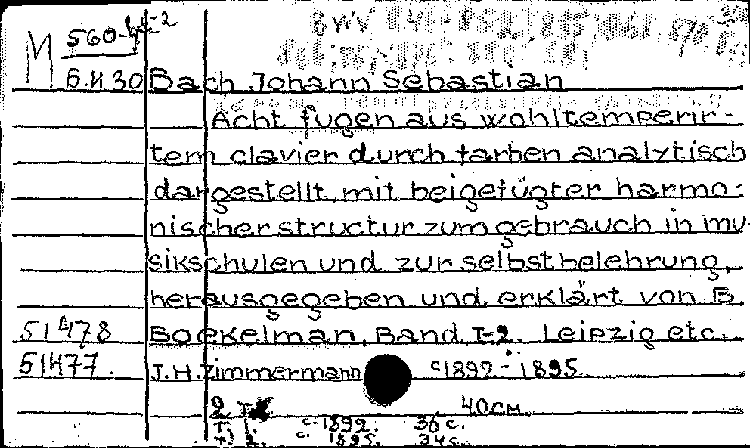 M 560-
BWV
6.H 30 Bach Johann Sebastian
Acht fugen aus wohltemperir-
tem clavier durch farben analytisch
dargestellt mit beigefügter harmo-
nischer structur zum gebrauch in mu-
sikschulen und zur selbstbelehrung,
herausgegeben und erklärt von B.
51478 Boekelman. Band I-2. Leipzig etc.
51477. J.H.Zimmermann c1892 - 1895
40см.
c. 1892. 36 c.
c. 1895. 34 c.